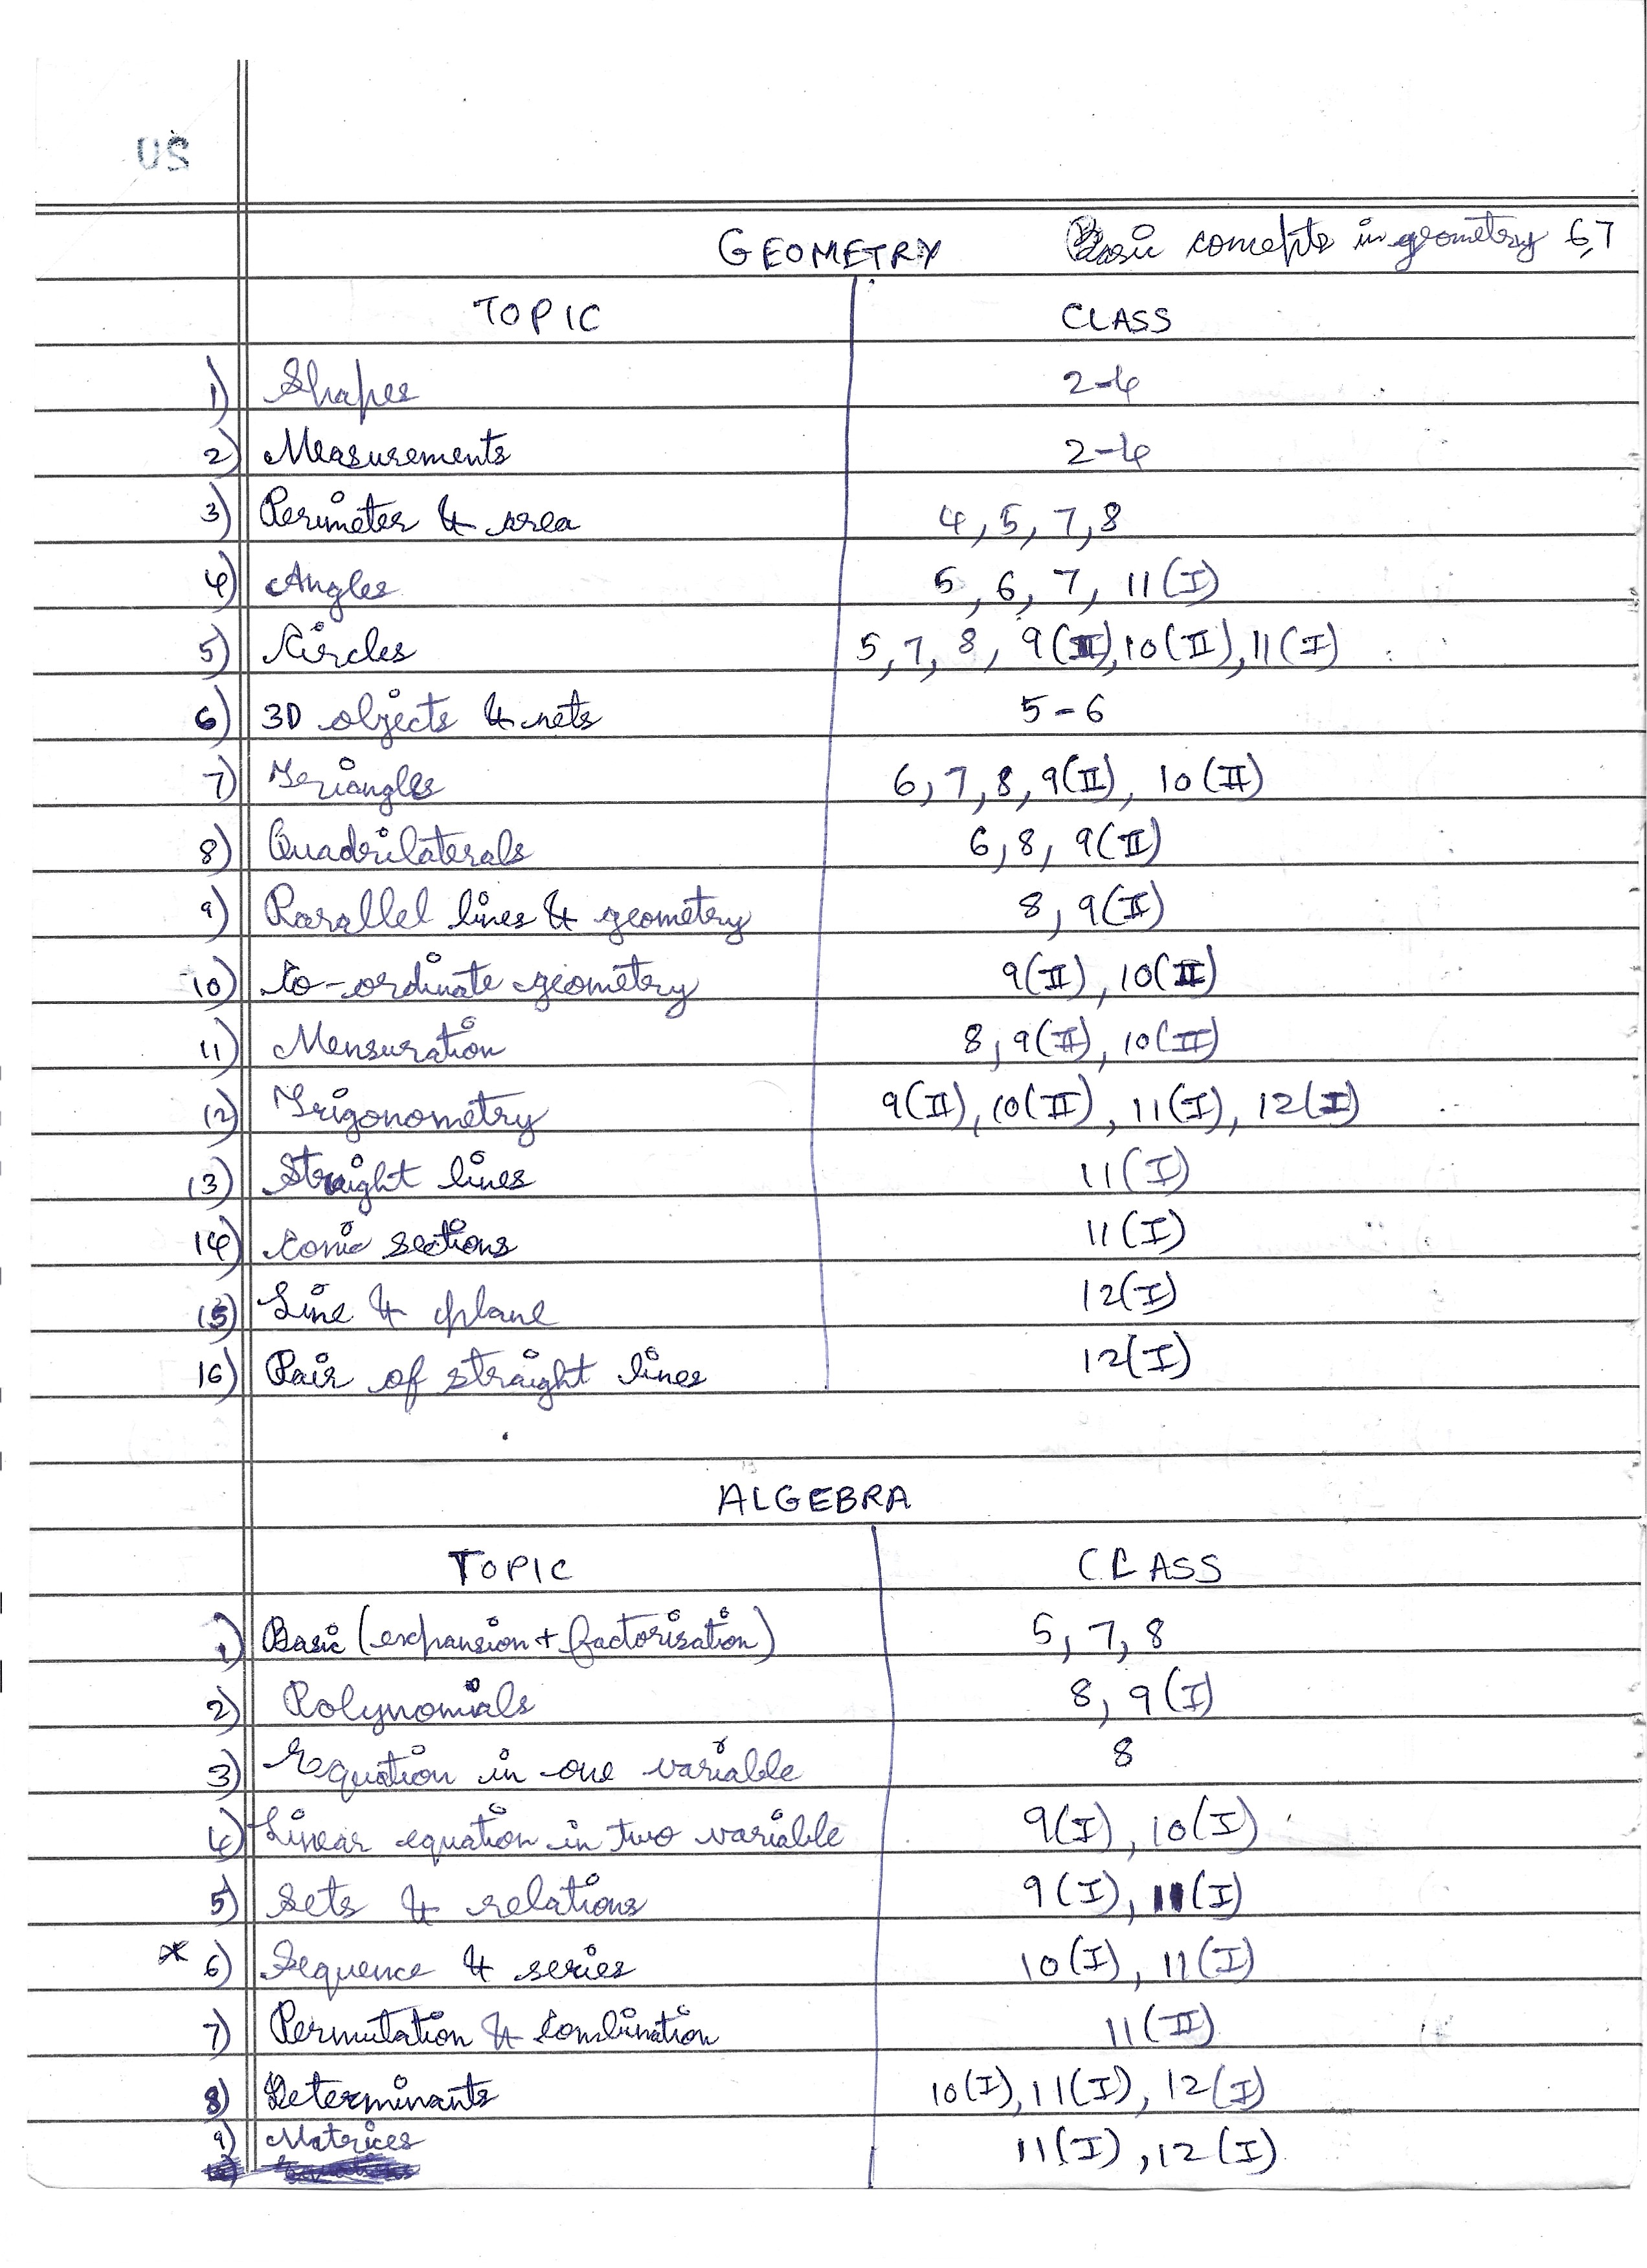 US
GEOMETRY Basic concepts in geometry 6,7
TOPIC CLASS
1) Shapes 2-4
2) Measurements 2-4
3) Perimeter & area 4, 5, 7, 8
4) Angles 5, 6, 7, 11(I)
5) Circles 5, 7, 8, 9(II), 10(II), 11(I)
6) 3D objects & nets 5-6
7) Triangles 6, 7, 8, 9(II), 10(II)
8) Quadrilaterals 6, 8, 9(II)
9) Parallel lines & geometry 8, 9(II)
10) Co-ordinate geometry 9(II), 10(II)
11) Mensuration 8, 9(II), 10(II)
12) Trigonometry 9(II), 10(II), 11(I), 12(I)
13) Straight lines 11(I)
14) Conic sections 11(I)
15) Line & plane 12(I)
16) Pair of straight lines 12(I)
ALGEBRA
TOPIC CLASS
1) Basic (expansion + factorisation) 5, 7, 8
2) Polynomials 8, 9(I)
3) Equation in one variable 8
4) Linear equation in two variable 9(I), 10(I)
5) Sets & relations 9(I), 11(I)
* 6) Sequence & series 10(I), 11(I)
7) Permutation & Combination 11(II)
8) Determinants 10(I), 11(I), 12(I)
9) Matrices 11(I), 12(I)